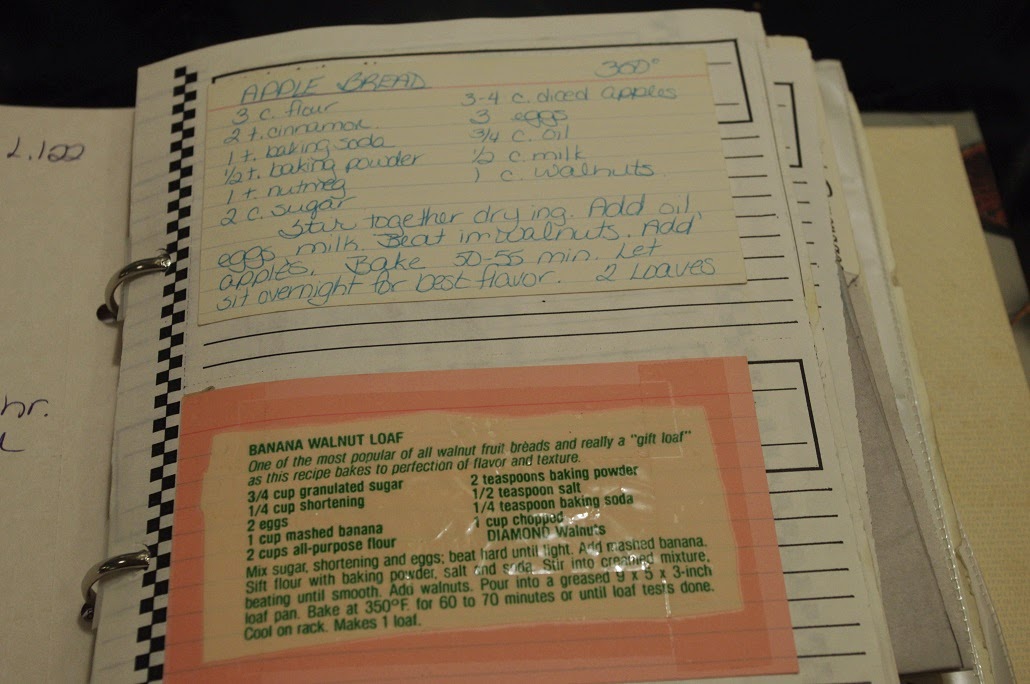 APPLE BREAD 360°
3 c. flour 3-4 c. diced apples
2 t. cinnamon 3 eggs
1 t. baking soda 3/4 c. oil
1/2 t. baking powder 1/2 c. milk
1 t. nutmeg 1 c. walnuts
2 c. sugar
Stir together dry ing. Add oil,
eggs, milk. Beat in walnuts. Add
apples. Bake 50-55 min. Let
sit overnight for best flavor. 2 Loaves
BANANA WALNUT LOAF
One of the most popular of all walnut fruit breads and really a "gift loaf"
as this recipe bakes to perfection of flavor and texture.
3/4 cup granulated sugar 2 teaspoons baking powder
1/4 cup shortening 1/2 teaspoon salt
2 eggs 1/4 teaspoon baking soda
1 cup mashed banana 1 cup chopped
2 cups all-purpose flour DIAMOND Walnuts
Mix sugar, shortening and eggs; beat hard until light. Add mashed banana.
Sift flour with baking powder, salt and soda. Stir into creamed mixture,
beating until smooth. Add walnuts. Pour into a greased 9 x 5 x 3-inch
loaf pan. Bake at 350°F. for 60 to 70 minutes or until loaf tests done.
Cool on rack. Makes 1 loaf.
hr.